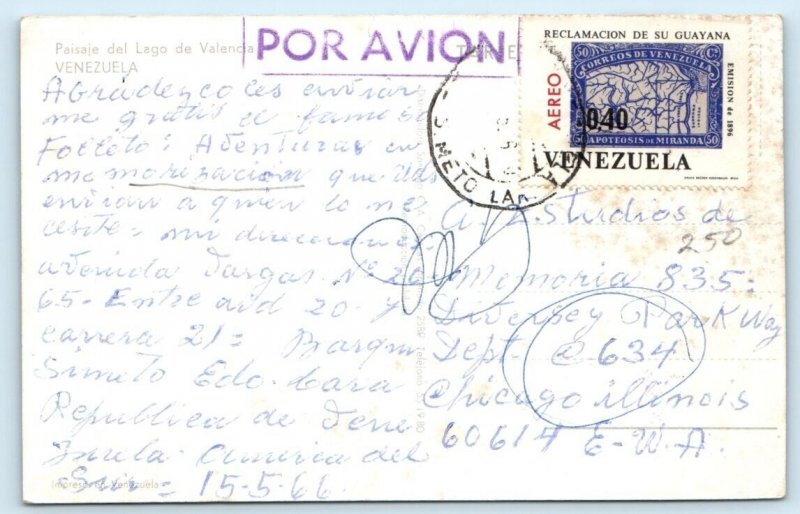 Paisaje del Lago de Valencia
VENEZUELA
POR AVION
RECLAMACION DE SU GUAYANA
50 Cs. 50
CORREOS DE VENEZUELA
AEREO
0.40
EMISION de 1896
50 APOTEOSIS de MIRANDA 50
VENEZUELA
METO LAR
Agradezco les enviar
me gratis el famoso
Folleto: Aventuras en
memorizacion que Uds
envian a quien lo ne
cesite = mi direccion es
avenida Vargas Nº 20
65 - Entre aid 20 - y
carrera 21 = Barqui
Simeto Edo. Lara
Republica de Vene
Zuela America del
Sur = 15-5-66
A Estudios de
250
Memoria 835 =
Diversey ParkWay
Dept. @ 634
Chicago illinois
60614 E-W.A.
Impreso en Venezuela